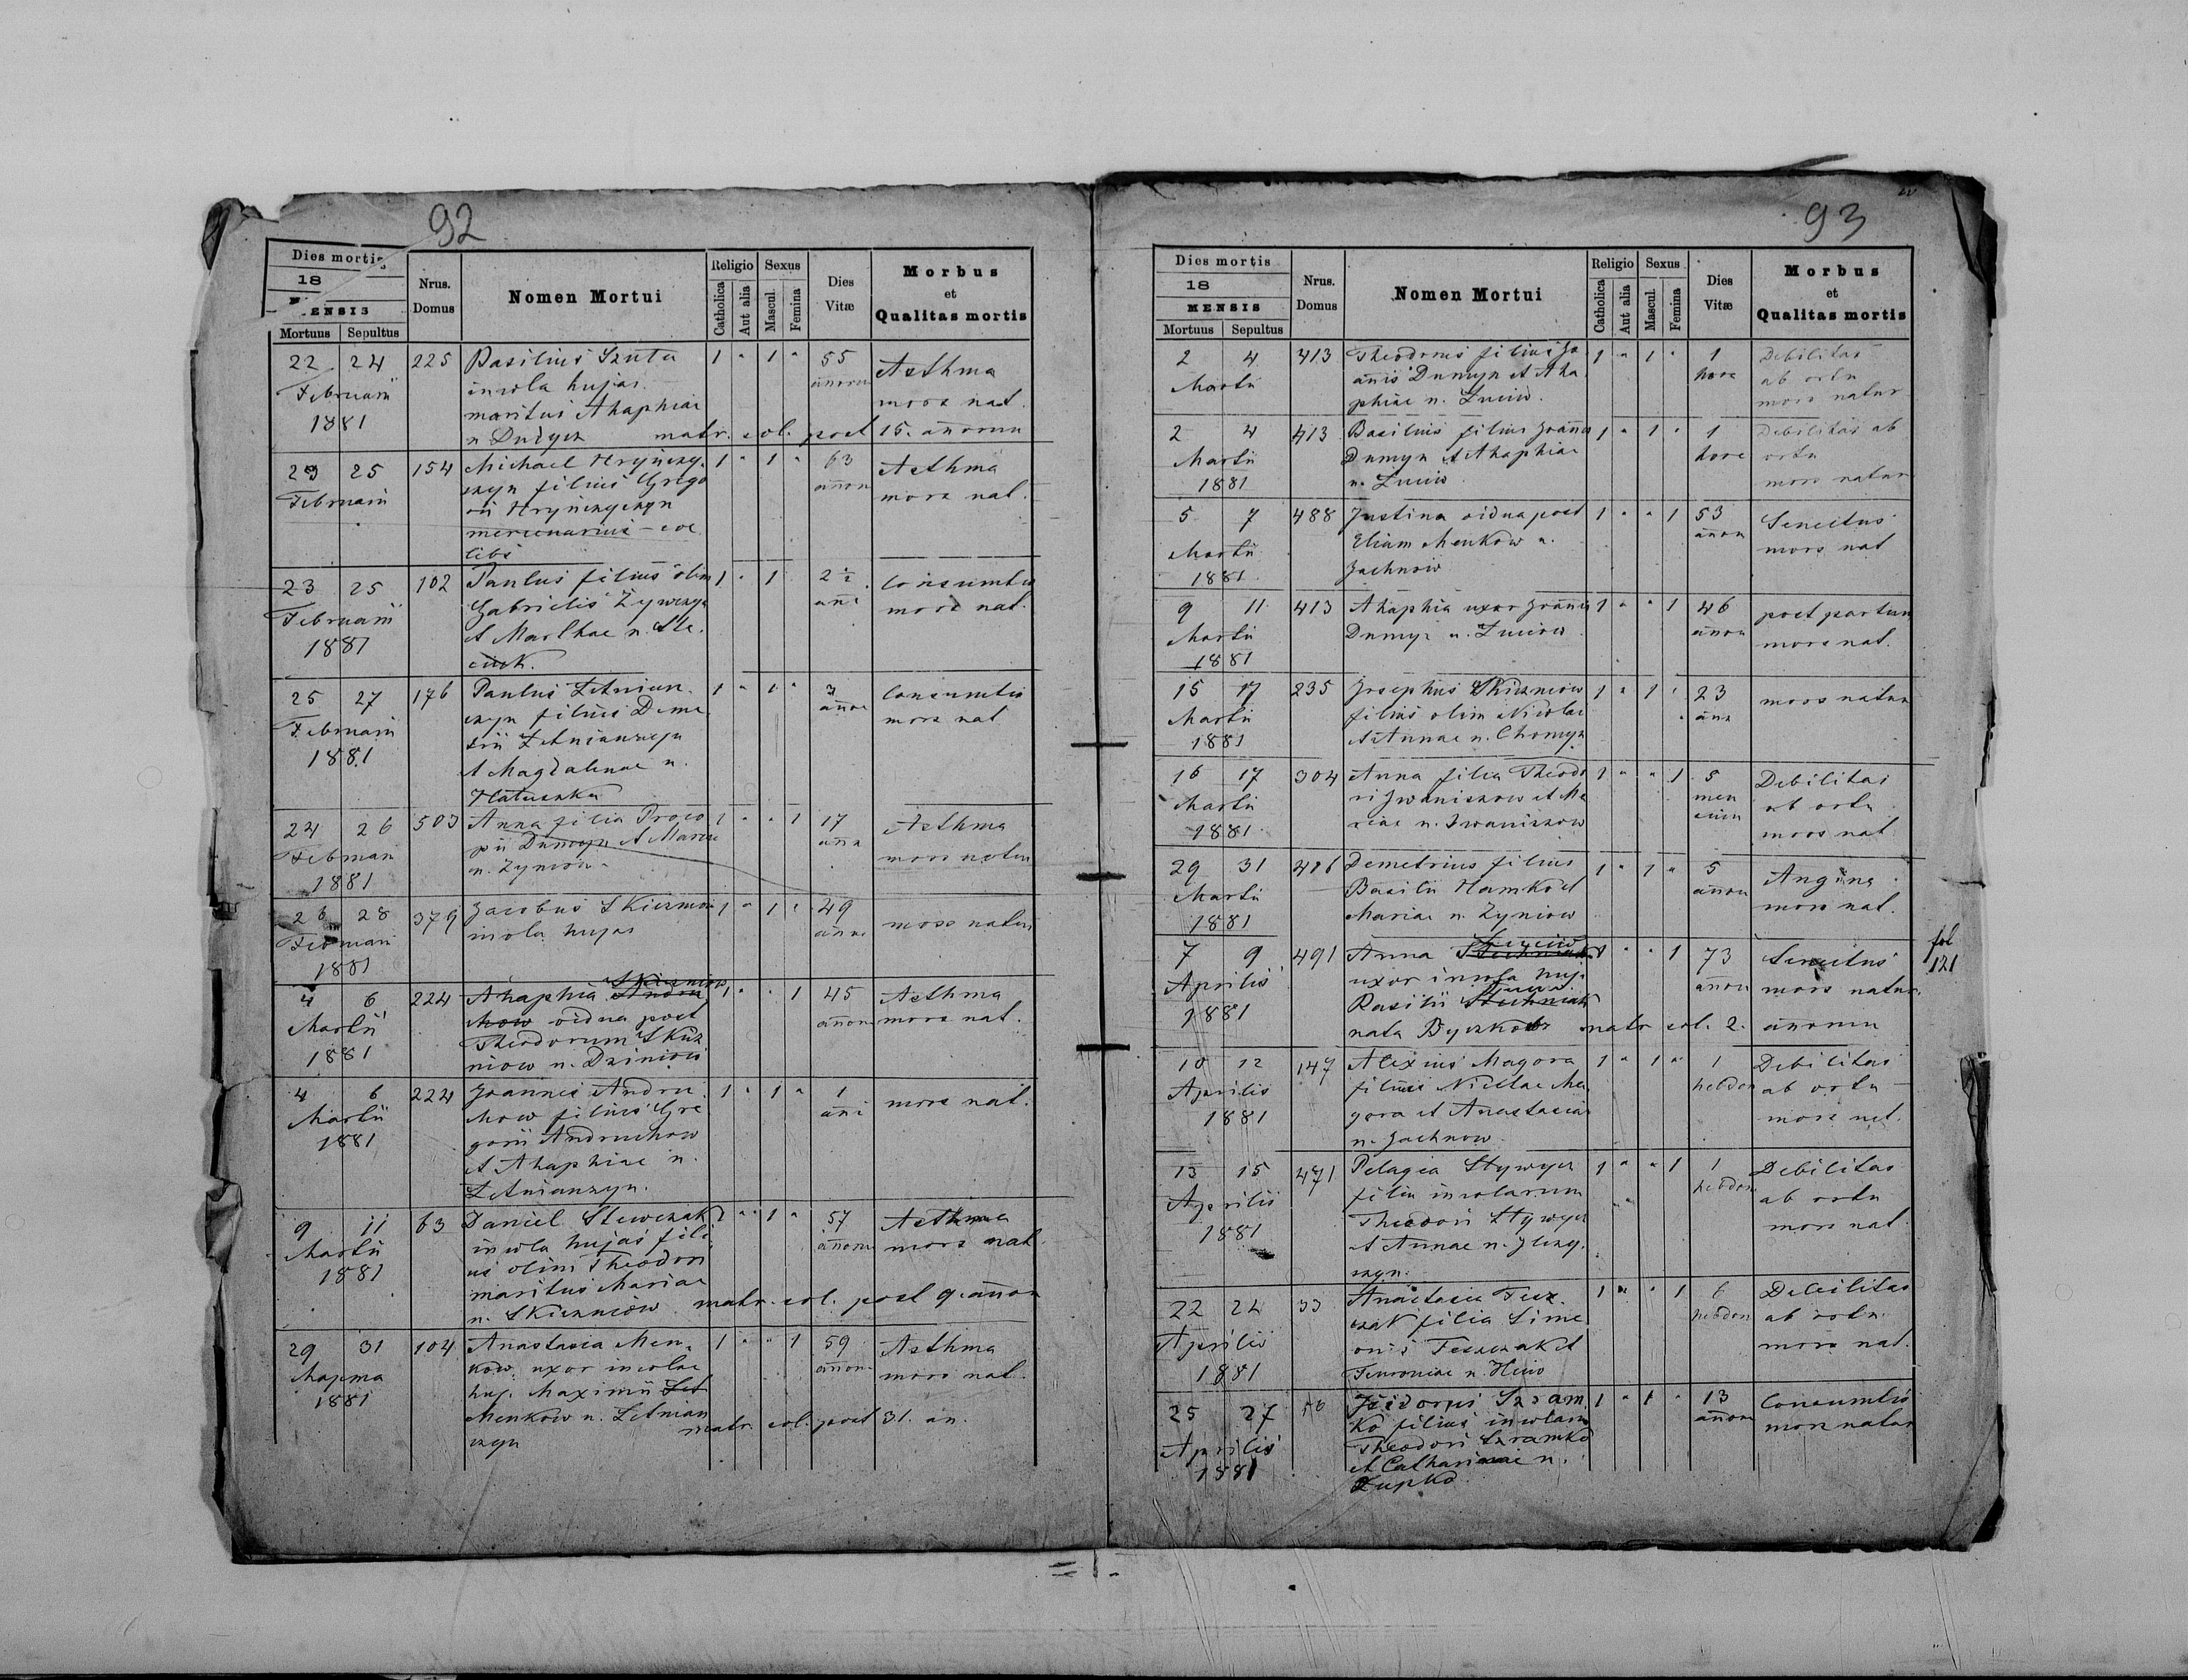 92
Dies mortis
18
ENSIS
Mortuus Sepultus
Nrus. Domus
Nomen Mortui
Religio
Catholica Aut alia
Sexus
Mascul. Femina
Dies Vitæ
Morbus et Qualitas mortis
22 24 225 Basilius Szuta 1 " 1 " 55
Februarii incola hujas annorum Asthma
1881 maritus Ahaphiae mors nat.
n matr. col. post 15. annorum
23 25 154 Michael Hryńczy- 1 " 1 " 63 Asthma
Februarii szyn filius Grego annor mors nat.
rii Hryńczyszyn
mercenarius – coe
libs
23 25 102 Paulus filius olim 1 " 1 2 ½ Consumtio
Februarii Gabrielis anni mors nat.
1881 et Marthae n. Ste
ciuk.
25 27 176 Paulus Letnian- 1 " 1 " 3 Consumtio
Februarii czyn filius Deme annor mors nat
1881 trii Letnianczyn
et Magdalenae n.
24 26 503 Anna filia Proco 1 " " 1 17 Asthma
Februarii pii Dumyn et Mariae ann mors natur
1881 n. Zyniow
26 28 379 Jacobus Skiczniow 1 " 1 " 49 mors natur
Februarii incola hujas anno
1881
4 6 224 Ahaphia Skiczniow 1 " " 1 45 Asthma
Martii vidua post annor mors nat.
1881 Theodorum Skicz
niow n. Dziniow
4 6 224 Joannes Andru 1 " 1 " 1 mors nat.
Martii chow filius Gre anni
1881 gorii Andruchow
et Ahaphiae n.
Letnianczyn.
9 11 63 Daniel Stewczak 1 " 1 " 57 Asthma
Martii incola hujas fili annor mors nat
1881 us olim Theodori
maritus Mariae
n. Skiczniow matr. col. post 9 annor
29 31 104 Anastasia Men- 1 " " 1 59 Asthma
Марта kow uxor incolae annor mors nat.
1881 huj. Maximi Let
Menkow n. Letnian matr. col. post 31. an.
czyn
93
Dies mortis
18
MENSIS
Mortuus Sepultus
Nrus. Domus
Nomen Mortui
Religio
Catholica Aut alia
Sexus
Mascul. Femina
Dies Vitæ
Morbus et Qualitas mortis
2 4 413 Theodorus filius Jo 1 " 1 " 1 Debilitas
Martii annis Dumyn et Aha hora ab ortu
phiae n. mors natur
2 4 413 Basilius filius Joannis 1 " 1 " 1 Debilitas ab
Martii Dumyn et Ahaphiae hora ortu
1881 n. mors natur
5 7 488 Justina vidua post 1 " " 1 53 Senectus
Martii Eliam Menkow n. annor mors nat
1881 Jachnow
9 11 413 Ahaphia uxor Joannis 1 " " 1 46 post partum
Martii Dumyn n. annor mors nat.
1881
15 17 235 Josephus Skiczniow 1 " 1 " 23 mors natur
Martii filius olim Nicolai ann
1881 et Annae n. Chomyn
16 17 304 Anna filia Theodo 1 " " 1 5 Debilitas
Martii ri Iwaniszow et Ma men ab ortu
1881 riae n. Iwaniszow sium mors nat.
29 31 416 Demetrius filius 1 " 1 " 5 Angina
Martii Basilii Hamko et annor mors nat.
1881 Mariae n. Zyniow
7 9 491 Anna 1 " " 1 73 Senectus fol
Aprilis uxor incola huj. annor mors natur. 121
1881 Basilii
nata Byczkow matr col. 2. annorum
10 12 147 Alexius Magora 1 " 1 " 1 Debilitas
Aprilis filius Nicetae Ma hebdom ab ortu
1881 gora et Anastasiae mors nat.
n. Jachnow.
13 15 471 Pelagia Stywycz 1 " " 1 1 Debilitas
Aprilis filia incolarum hebdom ab ortu
1881 Theodori Stywycz mors nat
et Annae n. Ilczy-
szyn.
22 24 33 Anastasia Tesz- 1 " " 1 6 Debilitas
Aprilis czak filia Sime hebdom ab ortu
1881 onis Teszczak et mors nat.
Feuroniae n.
25 27 Isidorus Szram- 1 " 1 " 13 Consumtio
Aprilis ko filius incolarum annor mors natur
1881 Theodori Szramko
et Catharinae n.
Zupko